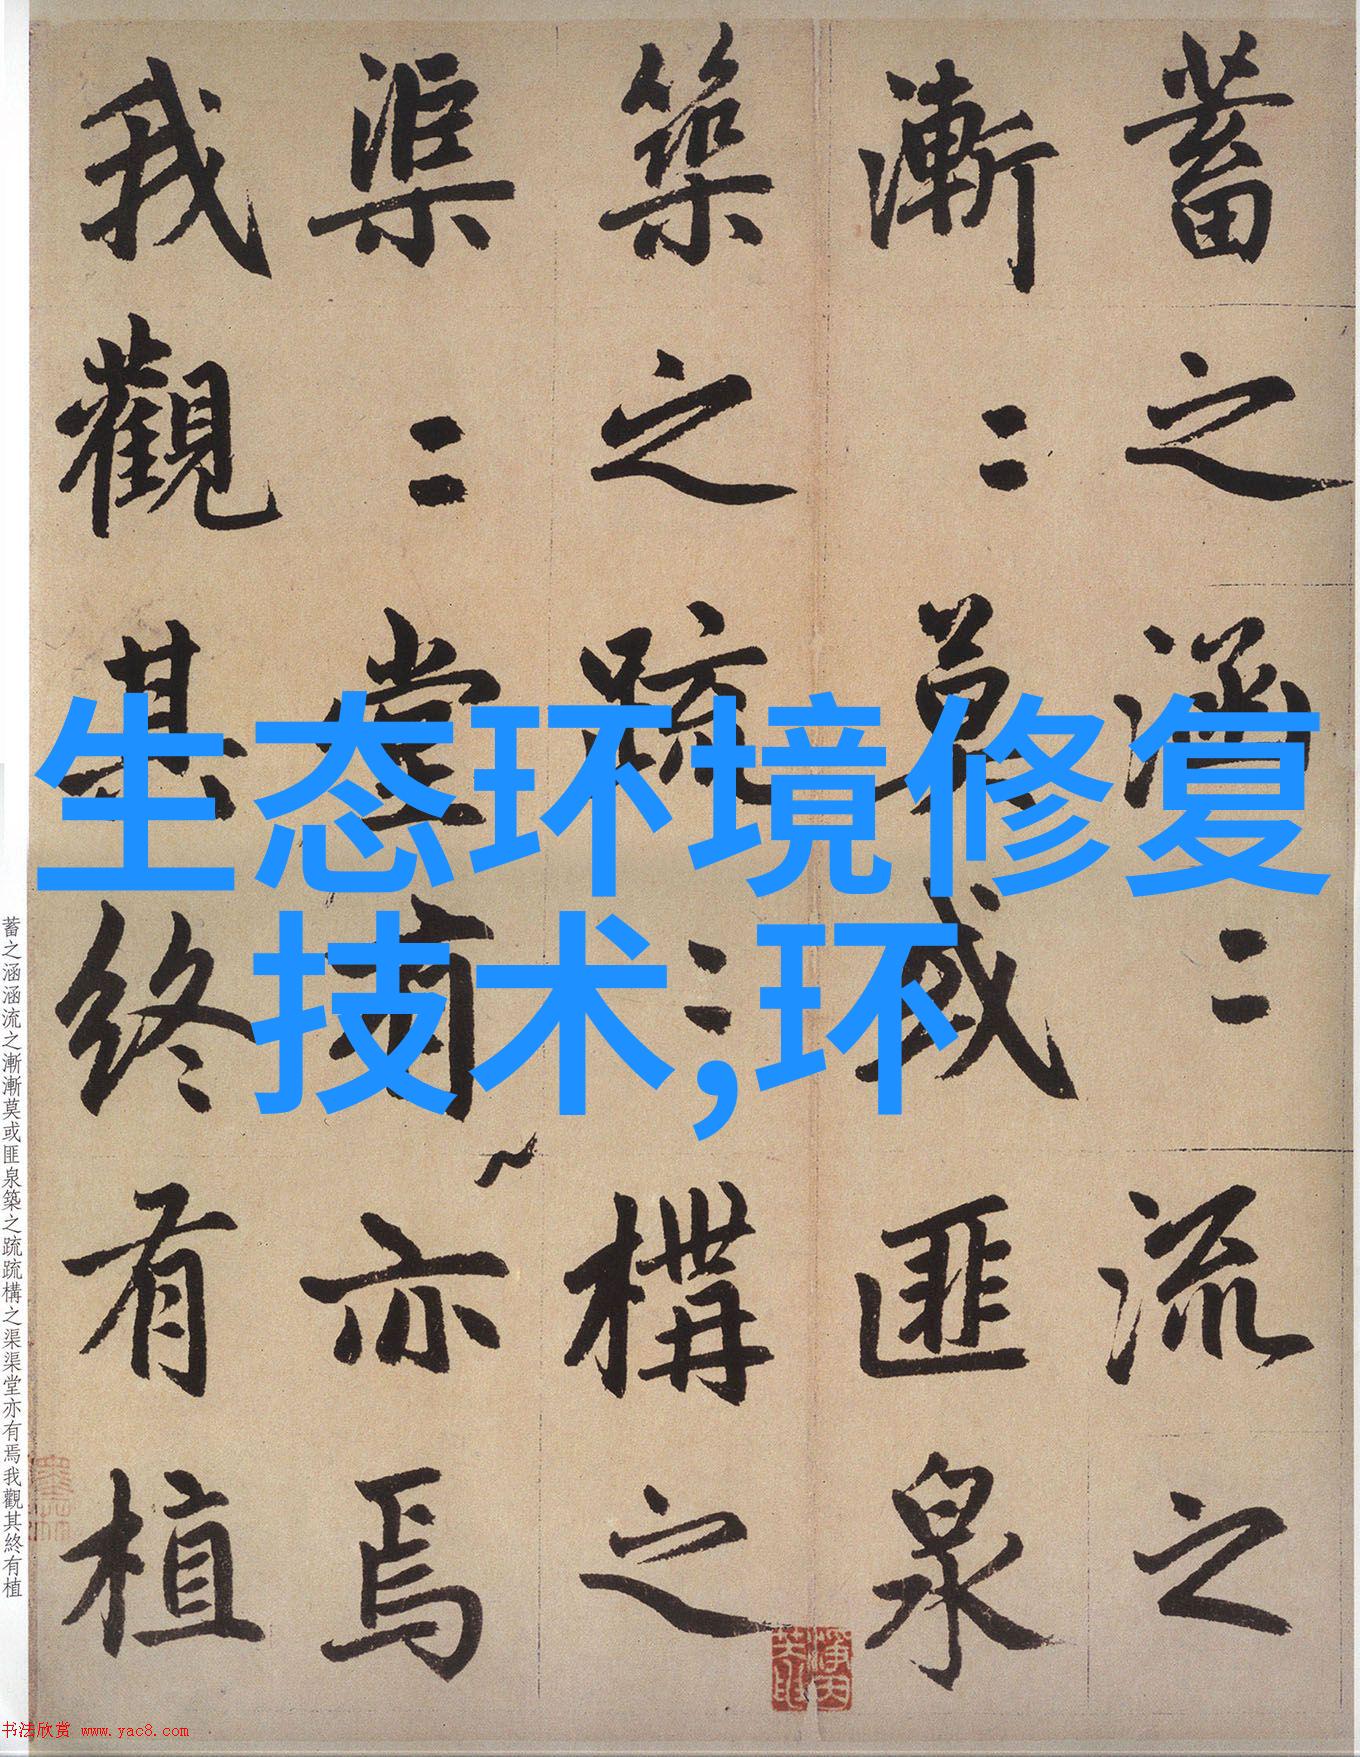 蓄之涵〻流之
漸〻莫或匪泉
築之疏〻構之
渠〻堂有亦焉
我觀其終有植
生态环境修复
技术,环
蓄之涵涵流之漸漸莫或匪泉築之疏疏構之渠渠堂亦有焉我觀其終有植
书法欣赏 www.yac8.com